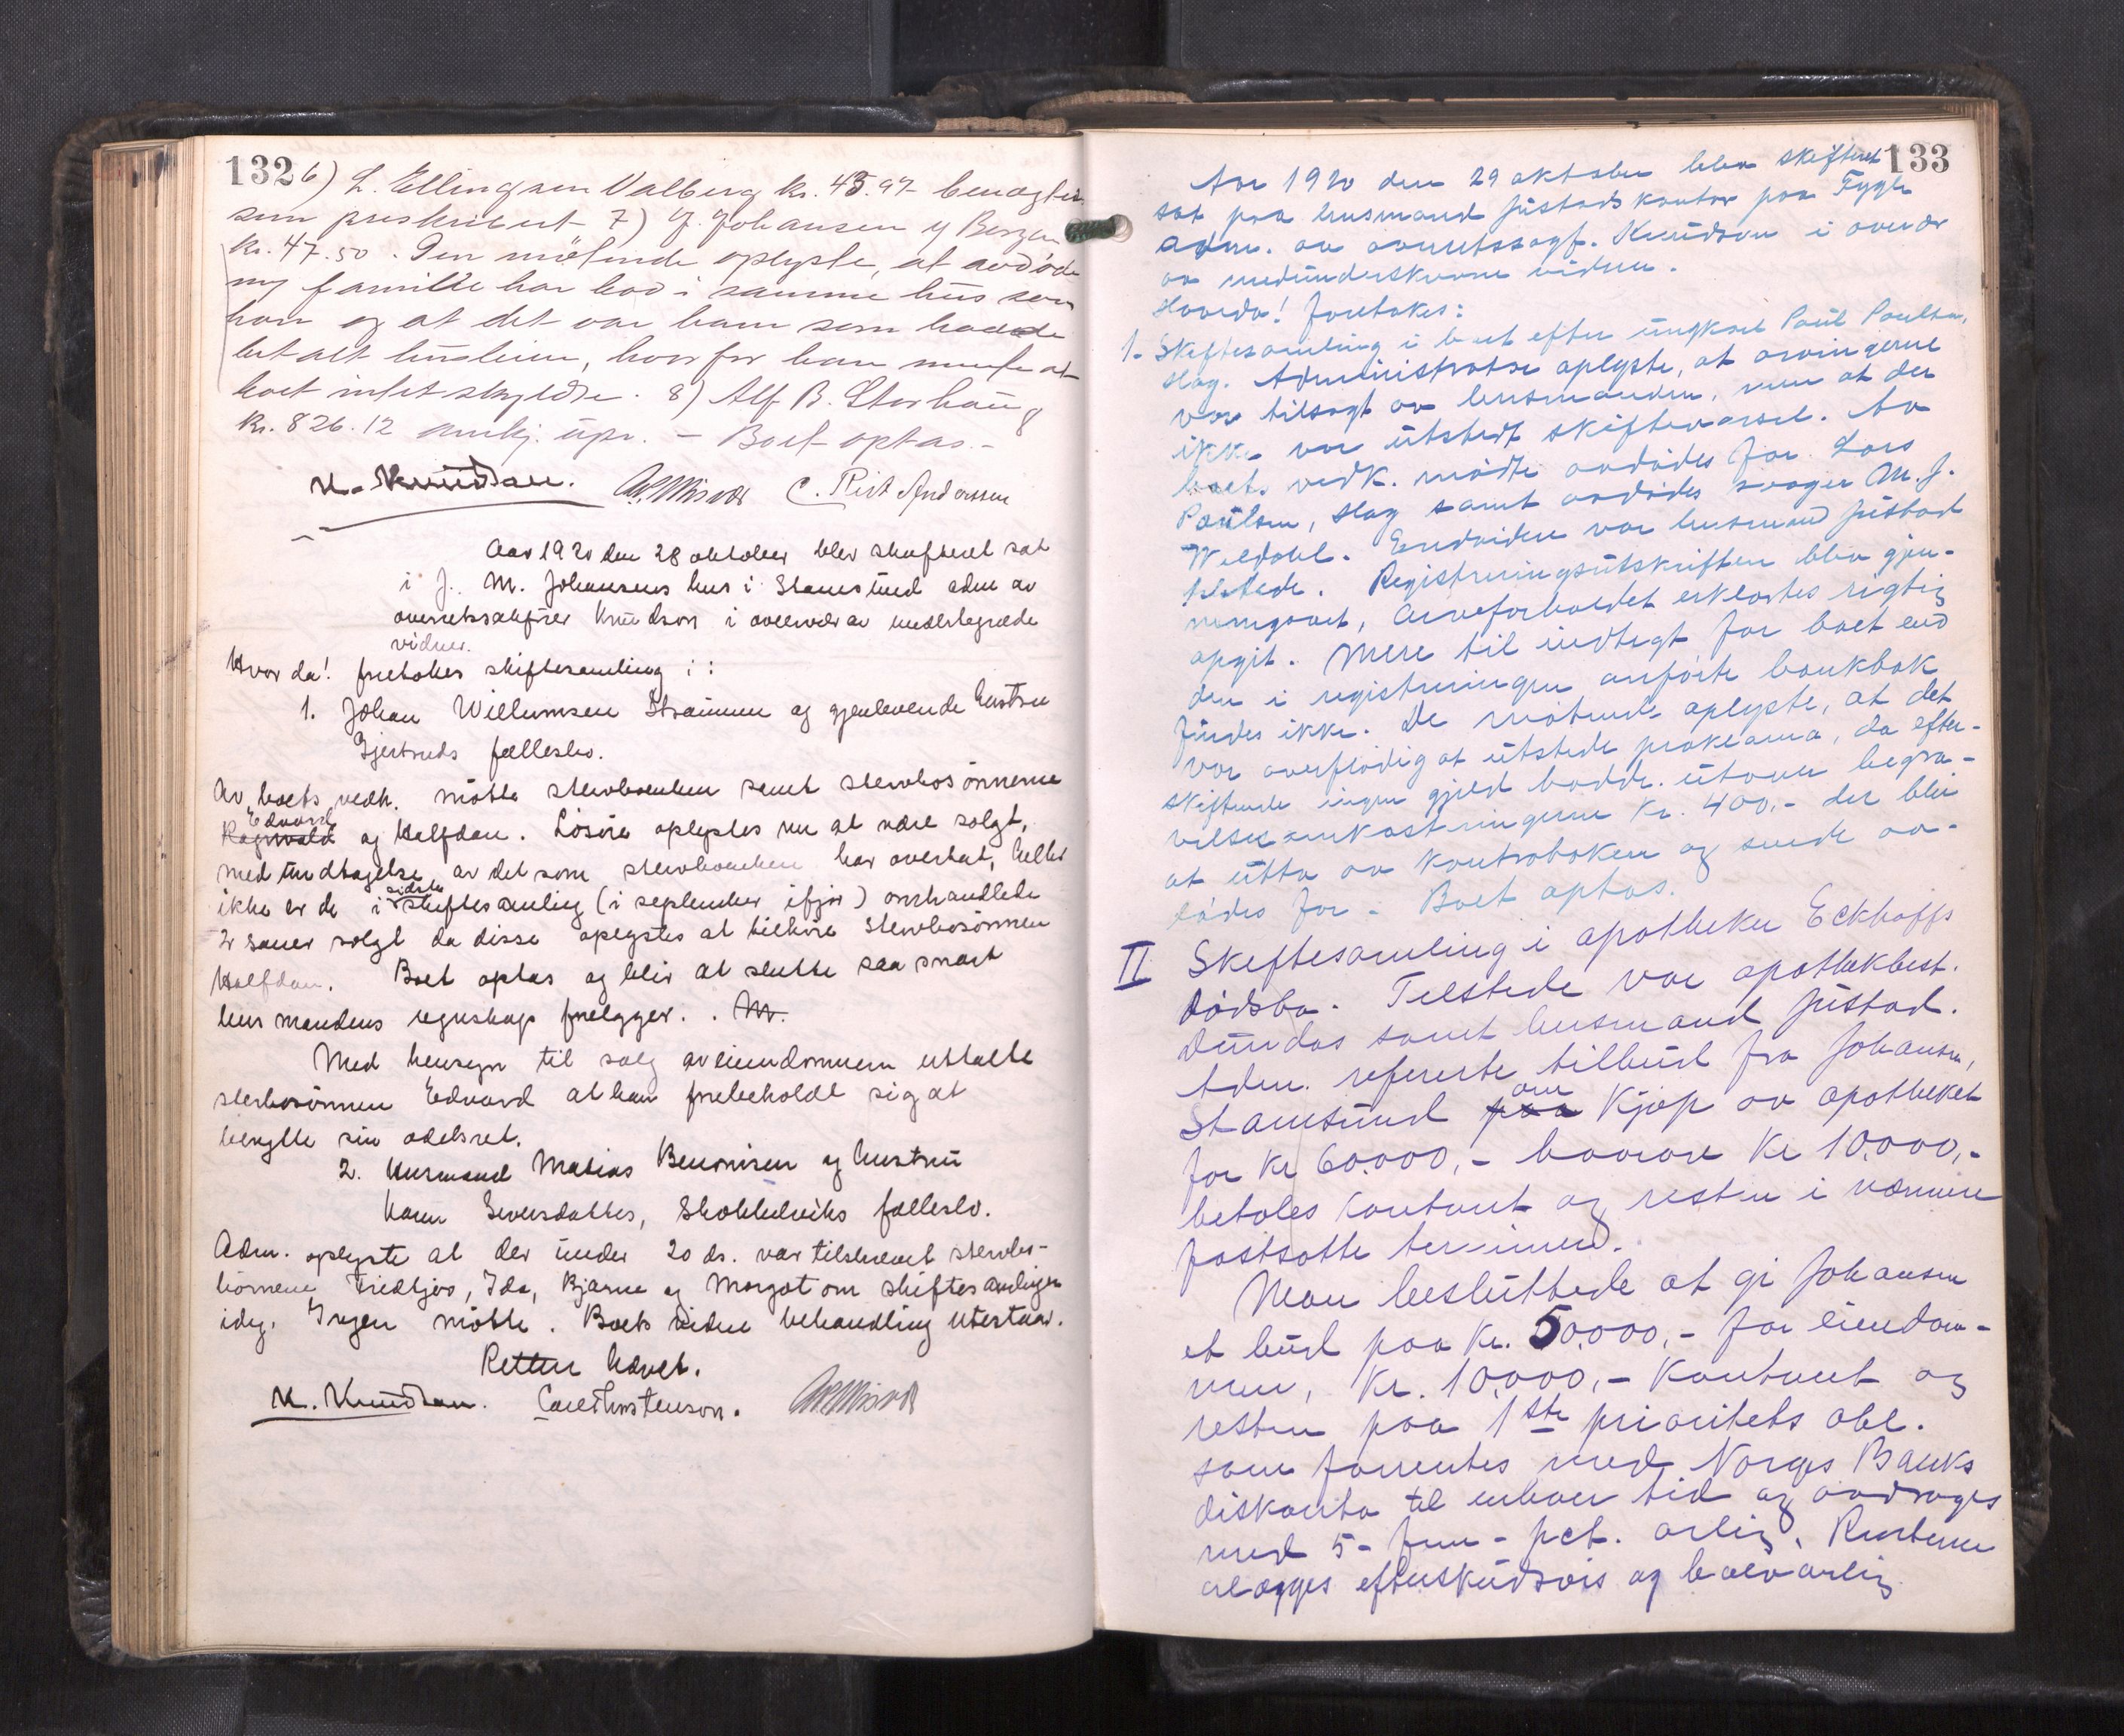 132 6) L. Ellingsen Valberg kr. 45.97 benegtes
som preskribert 7) J. Johansen y Bergen
kr. 47.50. Den mötende oplyste, at avdöde
og familie har bod i samme hus som
han og at det var ham som hadde
let alt husleien, hvorfor han mente at
boet intet skyldte. 8) Alf B. Storhaug
kr. 826.12 anerkj. upr. - Boet optas. -
K. Knudsen. C. Rist Anderssen
Aar 1920 den 28 oktober blev skifteret sat
i J. M. Johansens hus i Stamsund adm av
overretssakförer Knudson i overvær av undertegnede
vidner.
Hvorda! foretokes skiftesamling i:
1. Johan Willumsen Straumme og gjenlevende hustru
Gjertruds fællesbo.
Av boets vedk. mötte stervboenken samt stervbosönnerne
Edvard
Ragnvald og Halfdan. Lösöre oplystes nu at være solgt,
med undtagelse av det som stervboenken har overtat, heller
ikke er de i sidste skiftesamling (i september ifjor) omhandlede
2 sauer solgt da disse oplystes at tilhöre stervbosönnen
Halfdan. Boet optas og blir at slutte saa snart
lensmandens regnskap forelægger. . M.
Med hensyn til salg av eiendommen uttalte
sterbosönnen Edvard at han forbeholdt sig at
benytte sin odelsret.
2. Kurmand Matias Benonisen og hustru
Karen Sivertsdatter, Skokkelviks fællesbo.
Adm. oplyste at der under 20 ds. var tilskrevet stervbo-
börnene Fredtjov, Ida, Bjarne og Margot om skiftesamlingen
idag. Ingen mötte. Boets videre behandling utestaar.
Retten hævet.
K. Knudsen. Carl Thorstenson.
133
Aar 1920 den 29 oktober blev skifteret
sat paa lensmand Justads kontor paa Fygle
adm. av overretssagf. Knudson i overvær
av medunderskrevne vidner.
Hvorda! foretokes:
1. Skiftesamling i boet efter ungkarl Paul Paulsen,
Hag. Administrator oplyste, at arvingerne
var tilsagt av lensmanden, men at der
ikke var utstedt skiftevarsel. Av
boets vedk. mödte avdödes far Lars
Paulsen, Hag samt avdödes svoger M. J.
Weldahl. Endvidere var lensmand Justad
tilstede. Registreringsutskriften blev gjen-
nemgaaet, Arveforholdet erklærtes rigtig
opgit. Mere til indtegt for boet end
den i registreringen anförte bankbok
findes ikke. De mötende oplyste, at det
var overflödig at utstede proklama, da efter-
skiftende ingen gjæld hadde utover begra-
velsesomkostningerne kr. 400,- der blir
at utta av kontraboken og sende av-
dödes far. Boet optas.
II Skiftesamling i apotheker Eckhoffs
dödsbo. Tilstede var apothekbest.
Dundas samt lensmand Justad.
Adm. refererte tilbud fra Johansen,
Stamsund paa om kjöp av apotheket
for kr 60.000,- hvorav kr 10.000,-
betales kontant og resten i nærmere
fastsatte terminer.
Man besluttede at gi Johansen
et bud paa kr. 50.000,- for eiendom-
men, kr. 10.000,- kontant og
resten paa 1ste prioritets obl.
som forrentes med Norges Banks
diskonto til enhver tid og avdrages
med 5 - fem - pct. aarlig. Renterne
erlægges efterskudsvis og halvaarlig